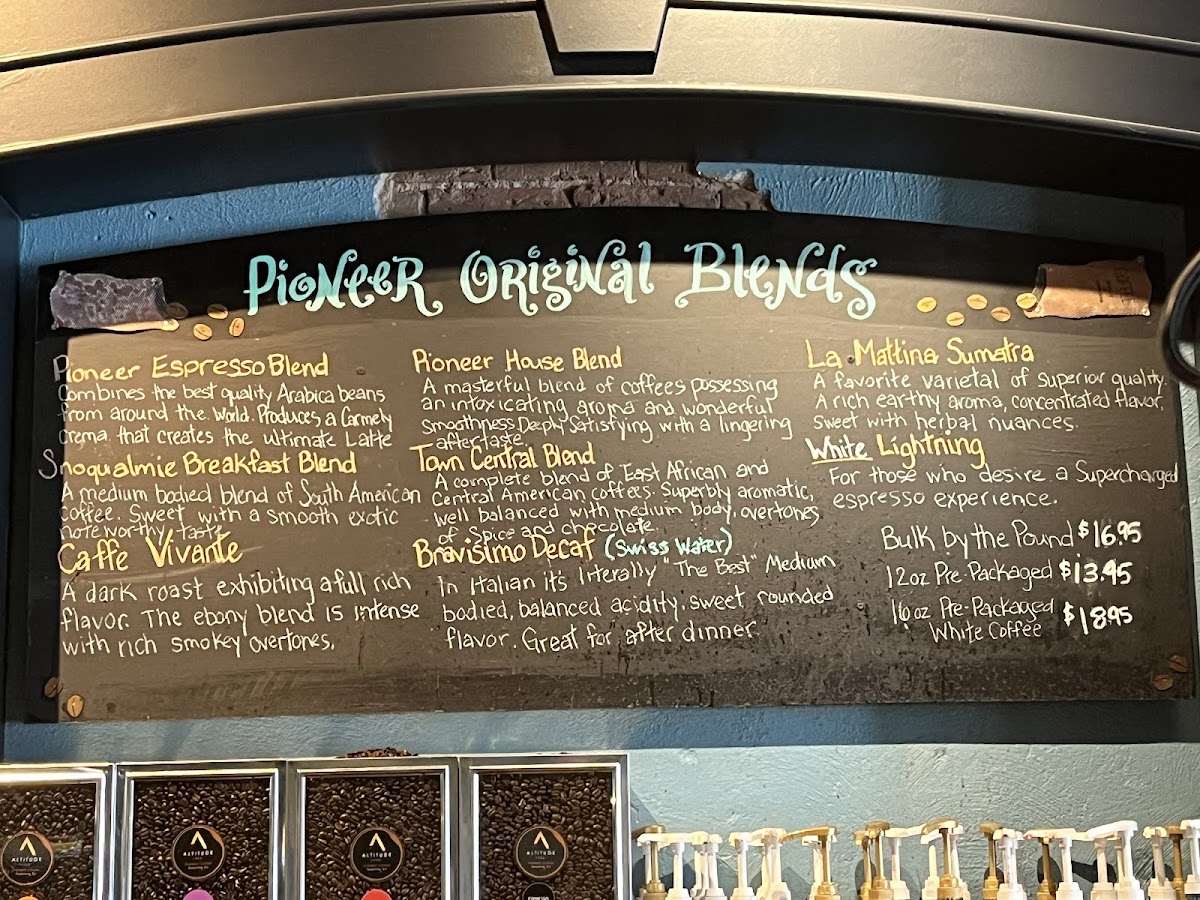 Pioneer Original Blends
Pioneer Espresso Blend
Combines the best quality Arabica beans
from around the World. Produces a Carmely
Crema that creates the ultimate Latte
Snoqualmie Breakfast Blend
A medium bodied blend of South American
coffee. Sweet with a smooth exotic
noteworthy taste
Caffe Vivante
A dark roast exhibiting a full rich
flavor. The ebony blend is intense
with rich smokey overtones.
Pioneer House Blend
A masterful blend of coffees possessing
an intoxicating aroma and wonderful
Smoothness Deeply Satisfying with a lingering
aftertaste
Town Central Blend
A complete blend of East African and
Central American coffees. Superbly aromatic,
well balanced with medium body, overtones
of Spice and chocolate.
Bravisimo Decaf (Swiss Water)
In Italian it's literally "The Best" Medium
bodied, balanced acidity, sweet rounded
flavor. Great for after dinner
La Mattina Sumatra
A favorite varietal of superior quality.
A rich earthy aroma, concentrated flavor,
sweet with herbal nuances.
White Lightning
For those who desire a Supercharged
espresso experience.
Bulk by the Pound $16.95
12oz Pre-Packaged $13.95
16oz Pre-Packaged
White Coffee $18.95
ALTITUDE
ALTITUDE
ALTITUDE
ALTITUDE